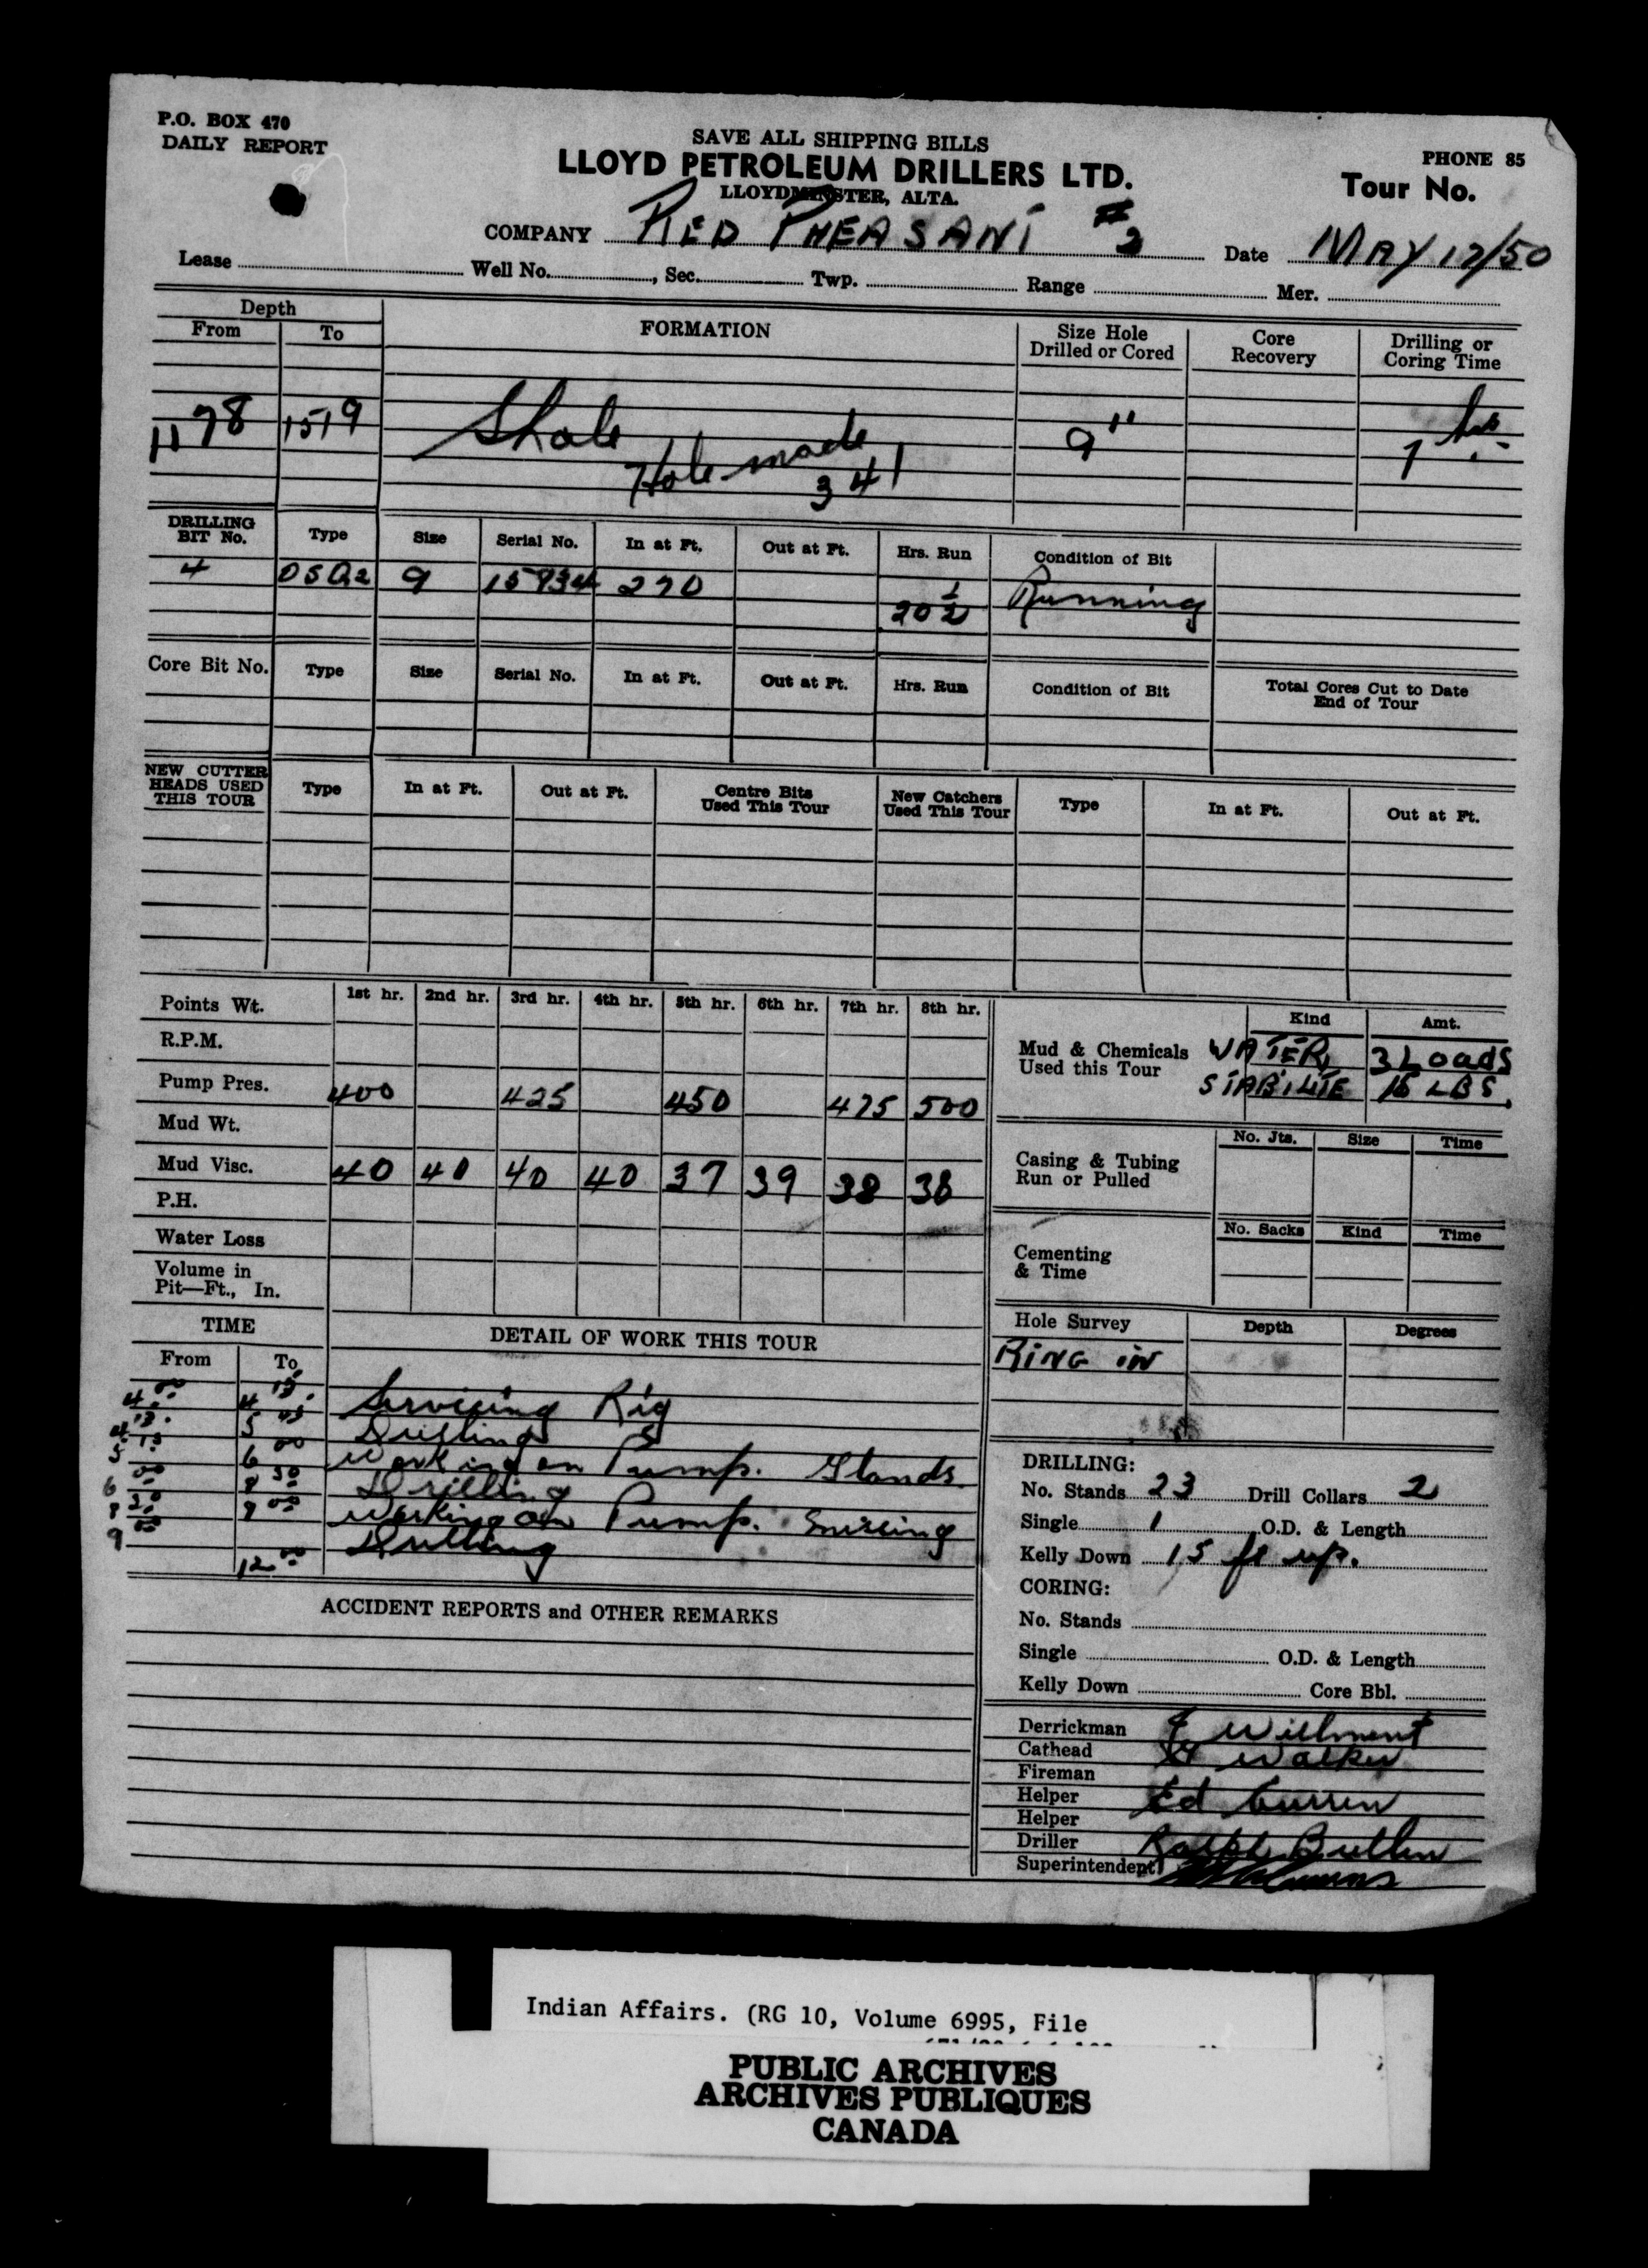 P.O. BOX 470
DAILY REPORT
SAVE ALL SHIPPING BILLS
LLOYD PETROLEUM DRILLERS LTD.
LLOYDMINSTER, ALTA.
PHONE 85
Tour No.
COMPANY RED PHEASANT #2 Date MAY 12/50
Lease Well No. , Sec. Twp. Range Mer.
Depth
From To FORMATION Size Hole Drilled or Cored Core Recovery Drilling or Coring Time
1178 1519 Shale 9" 7 hrs.
Hole made 341
DRILLING BIT No. Type Size Serial No. In at Ft. Out at Ft. Hrs. Run Condition of Bit
4 9 270 20 1/2 Running
Core Bit No. Type Size Serial No. In at Ft. Out at Ft. Hrs. Run Condition of Bit Total Cores Cut to Date End of Tour
NEW CUTTER HEADS USED THIS TOUR Type In at Ft. Out at Ft. Centre Bits Used This Tour New Catchers Used This Tour Type In at Ft. Out at Ft.
Points Wt. 1st hr. 2nd hr. 3rd hr. 4th hr. 5th hr. 6th hr. 7th hr. 8th hr.
R.P.M.
Pump Pres. 400 425 450 475 500
Mud Wt.
Mud Visc. 40 40 40 40 37 39 38 38
P.H.
Water Loss
Volume in Pit—Ft., In.
Kind Amt.
Mud & Chemicals Used this Tour WATER 3 Loads
STABILITE 15 LBS.
No. Jts. Size Time
Casing & Tubing Run or Pulled
No. Sacks Kind Time
Cementing & Time
Hole Survey Depth Degrees
RING IN
TIME DETAIL OF WORK THIS TOUR
From To
4.00 4 15. Servicing Rig
4.15. 5 45 Drilling
5 6 00 Working on Pump. Glands
6 00 8 30 Drilling
8 30 9 00 Working on Pump.
9 00 12 00 Drilling
ACCIDENT REPORTS and OTHER REMARKS
DRILLING:
No. Stands 23 Drill Collars 2
Single 1 O.D. & Length
Kelly Down 15 ft up.
CORING:
No. Stands
Single O.D. & Length
Kelly Down Core Bbl.
Derrickman Willment
Cathead Walker
Fireman
Helper Ed Curren
Helper
Driller Ralph
Superintendent
Indian Affairs. (RG 10, Volume 6995, File
PUBLIC ARCHIVES
ARCHIVES PUBLIQUES
CANADA